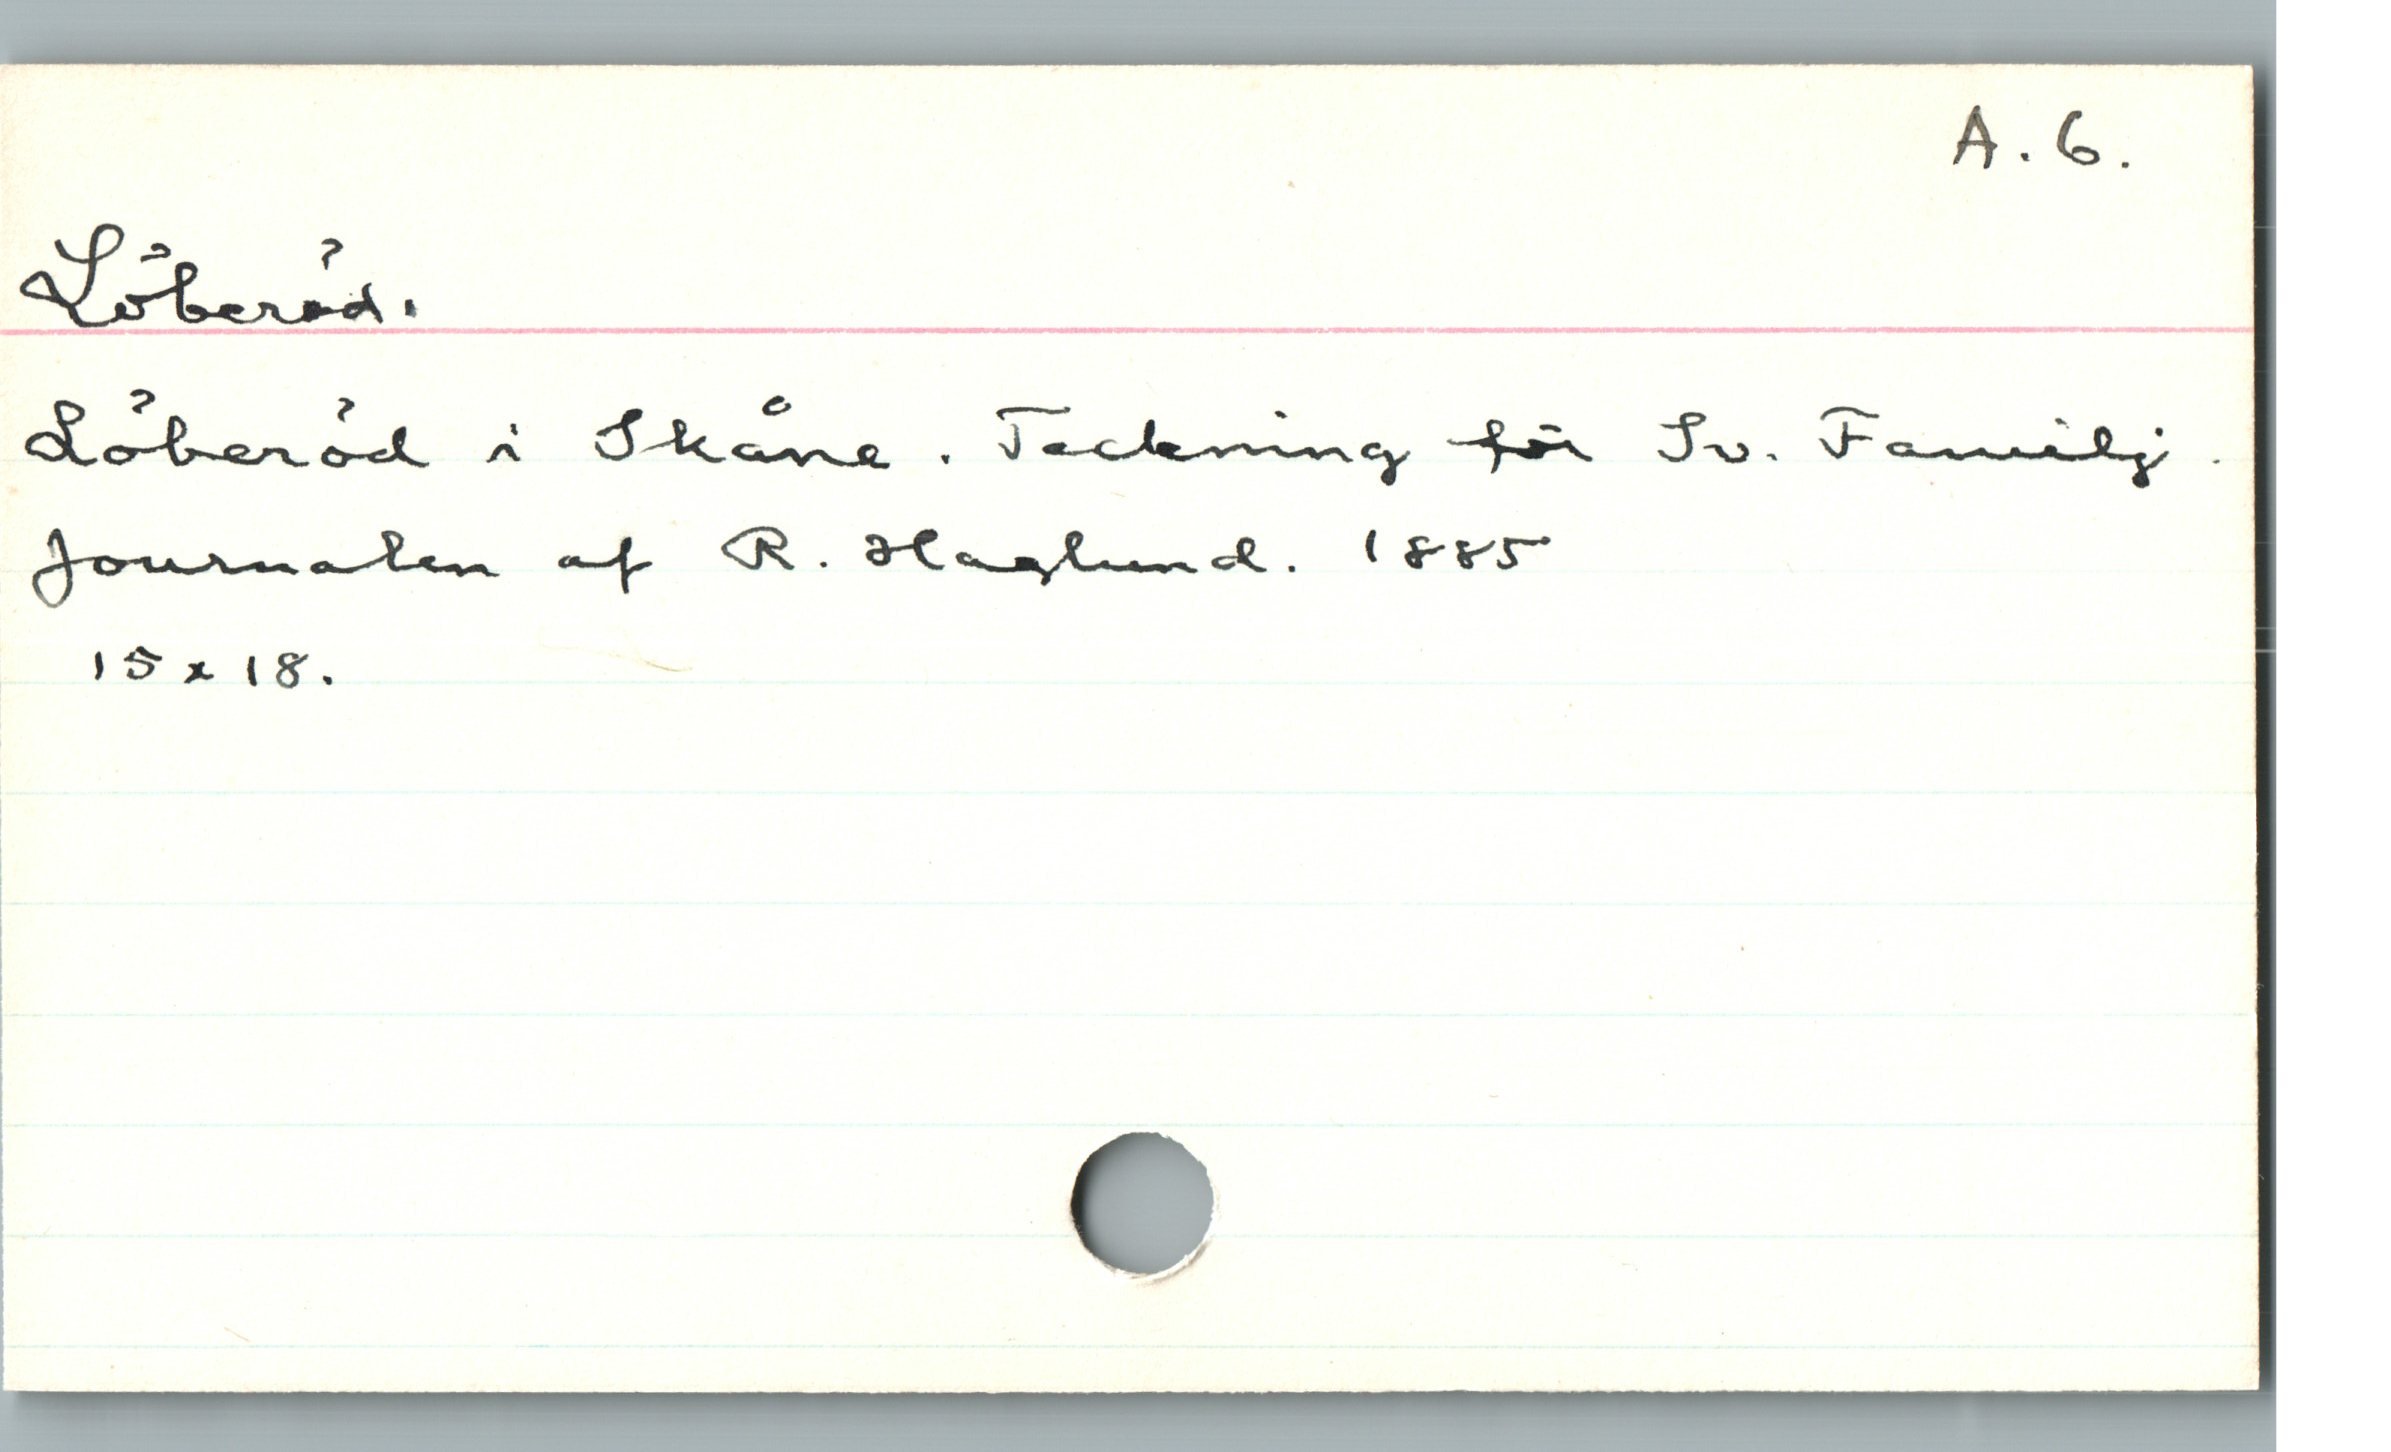 A. 6.
Löberöd.
Löberöd i Skåne. Teckning för Sv. Familj.
Journalen af R. Haglund. 1885
15 x 18.